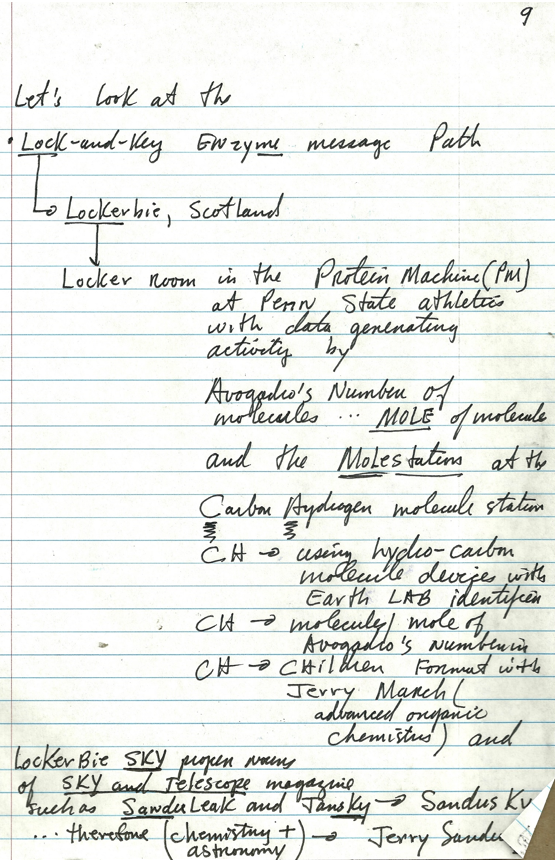 9
Let's look at the
• Lock-and-Key Enzyme message Path
Lockerbie, Scotland
Locker room in the Protein Machine (PM)
at Penn State athletics
with data generating
activity by
Avogadro's Number of
molecules ... MOLE of molecule
and the Molestations at the
Carbon Hydrogen molecule station
CH → using hydro-carbon
molecule devices with
Earth LAB identifier
CH → molecule/mole of
Avogadro's Number in
CH → CHildren Format with
Jerry March (
advanced organic
chemistry) and
LockerBie SKY proper nouns
of SKY and Telescope magazine
such as SanduLeak and Jansky → Sandus Ky
... therefore (chemistry + → Jerry Sandu
astronomy)